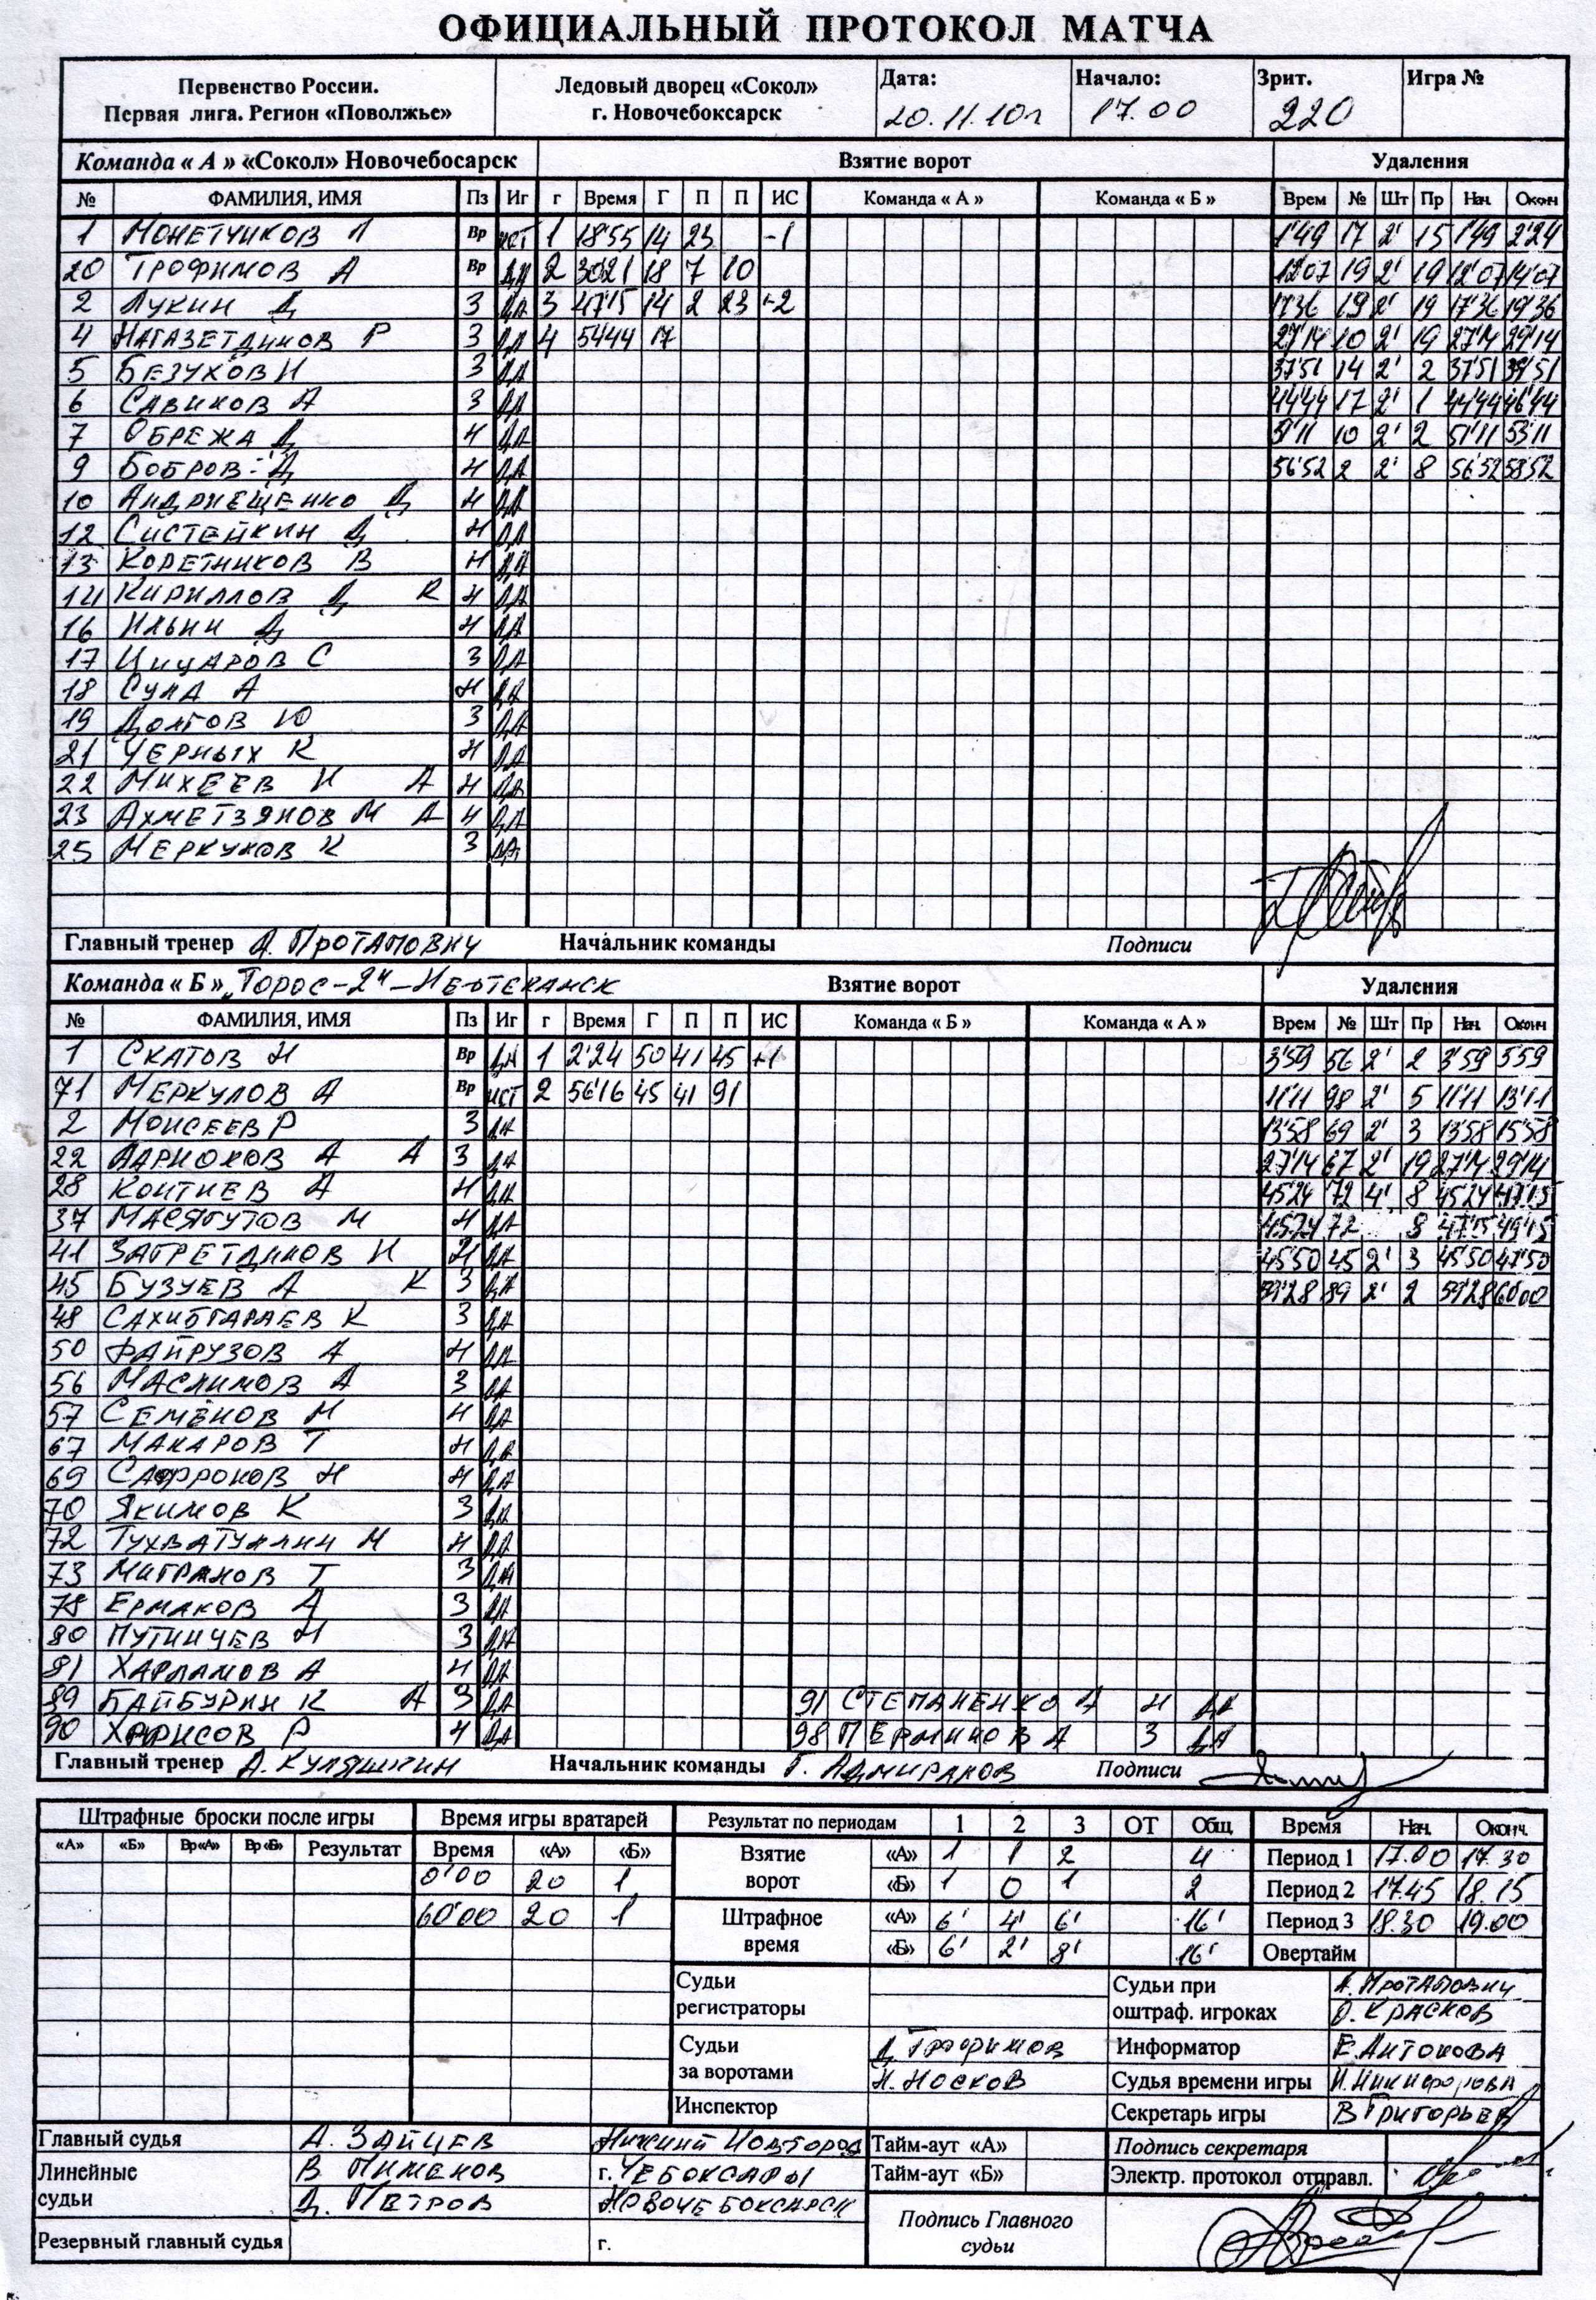 ОФИЦИАЛЬНЫЙ ПРОТОКОЛ МАТЧА
Первенство России. Ледовый дворец «Сокол» Дата: Начало: Зрит. Игра №
Первая лига. Регион «Поволжье» г. Новочебоксарск 20.11.10г 17.00 220
Команда « А » «Сокол» Новочебосарск Взятие ворот Удаления
№ ФАМИЛИЯ, ИМЯ Пз Иг г Время Г П П ИС Команда « А » Команда « Б » Врем № Шт Пр Нач. Оконч
1 МОНЕТЧИКОВ Л Вр 1 18'55 14 23 -1 1'49 17 2' 15 1'49 2'24
20 ТРОФИМОВ А Вр ДА 2 30'21 18 7 10 12'07 19 2' 19 12'07 14'07
2 ЛУКИН Д З ДА 3 47'15 14 2 23 +2 17'36 19 2' 19 17'36 19'36
4 НАГАЗЕТДИНОВ Р З ДА 4 54'44 17 27'14 10 2' 19 27'14 29'14
5 БЕЗУХОВ Н З ДА 37'51 14 2' 2 37'51 39'51
6 САВИНОВ А З ДА 44'44 17 2' 1 44'44 46'44
7 ОБРЕЖА Д Н ДА 51'11 10 2' 2 51'11 53'11
9 БОБРОВ Д Н ДА 56'52 2 2' 8 56'52 58'52
10 АНДРЮЩЕНКО Д Н ДА
12 СИСТЕЙКИН Д Н ДА
13 КОРЕТНИКОВ В Н ДА
14 КИРИЛЛОВ Д К Н ДА
16 ИЛЬИН Д Н ДА
17 ЦИЦАРОВ С З ДА
18 СУЛА А Н ДА
19 ДОЛГОВ Ю З ДА
21 ЧЕРНЫХ К Н ДА
22 МИХЕЕВ И А Н ДА
23 АХМЕТЗЯНОВ М А Н ДА
25 МЕРКУЛОВ К З ДА
Главный тренер А. ПРОТАПОВИЧ Начальник команды Подписи
Команда « Б » „ТОРОС-2" - НЕФТЕКАМСК Взятие ворот Удаления
№ ФАМИЛИЯ, ИМЯ Пз Иг г Время Г П П ИС Команда « Б » Команда « А » Врем № Шт Пр Нач. Оконч
1 СКАТОВ Н Вр ДА 1 2'24 50 41 45 +1 3'59 56 2' 2 3'59 5'59
71 МЕРКУЛОВ А Вр 2 56'16 45 41 91 11'11 98 2' 5 11'11 13'11
2 МОИСЕЕВ Р З ДА 13'58 69 2' 3 13'58 15'58
22 ЛАРИОНОВ А А З ДА 27'14 67 2' 19 27'14 29'14
28 КОНТИЕВ А Н ДА 45'24 72 4' 8 45'24 47'15
37 МАСЯГУТОВ М Н ДА 45'24 72 8 47'15 49'15
41 ЗАГРЕТДИНОВ И Н ДА 45'50 45 2' 3 45'50 47'50
45 БУЗУЕВ А К З ДА 59'28 89 2' 2 59'28 60'00
48 САХИБГАРАЕВ К З ДА
50 ФАЙРУЗОВ А Н ДА
56 МАСЛИМОВ А З ДА
57 СЕМЁНОВ М Н ДА
67 МАКАРОВ Т Н ДА
69 САФРОНОВ Н Н ДА
70 ЯКИМОВ К З ДА
72 ТУХВАТУЛЛИН М Н ДА
73 МИГРАНОВ Т З ДА
78 ЕРМАКОВ А З ДА
80 ПУТИНЧЕВ Н З ДА
81 ХАРЛАМОВ А Н ДА
89 БАЙБУРИН К А З ДА 91 СТЕПАНЕНКО А Н ДА
90 ХАРИСОВ Р Н ДА 98 ПЕРМИНОВ А З ДА
Главный тренер А. КУЛЯШКИН Начальник команды Г. АДМИРАЛОВ Подписи
Штрафные броски после игры Время игры вратарей Результат по периодам 1 2 3 ОТ Общ Время Нач. Оконч.
«А» «Б» Вр«А» Вр«Б» Результат Время «А» «Б» Взятие ворот «А» 1 1 2 4 Период 1 17.00 17.30
0'00 20 1 «Б» 1 0 1 2 Период 2 17.45 18.15
60'00 20 1 Штрафное время «А» 6' 4' 6' 16' Период 3 18.30 19.00
«Б» 6' 2' 8' 16' Овертайм
Судьи регистраторы Судьи при оштраф. игроках А. ПРОТАПОВИЧ
О. КРАСКОВ
Судьи за воротами Д. ТРОФИМОВ Информатор Е. АНТОНОВА
Н. НОСКОВ Судья времени игры И. НИКИФОРОВА
Инспектор Секретарь игры В ГРИГОРЬЕВ
Главный судья А. ЗАЙЦЕВ НИЖНИЙ НОВГОРОД Тайм-аут «А» Подпись секретаря
Линейные судьи В ПИМЕНОВ г. ЧЕБОКСАРЫ Тайм-аут «Б» Электр. протокол отправл.
Д. ПЕТРОВ НОВОЧЕБОКСАРСК
Резервный главный судья г. Подпись Главного судьи